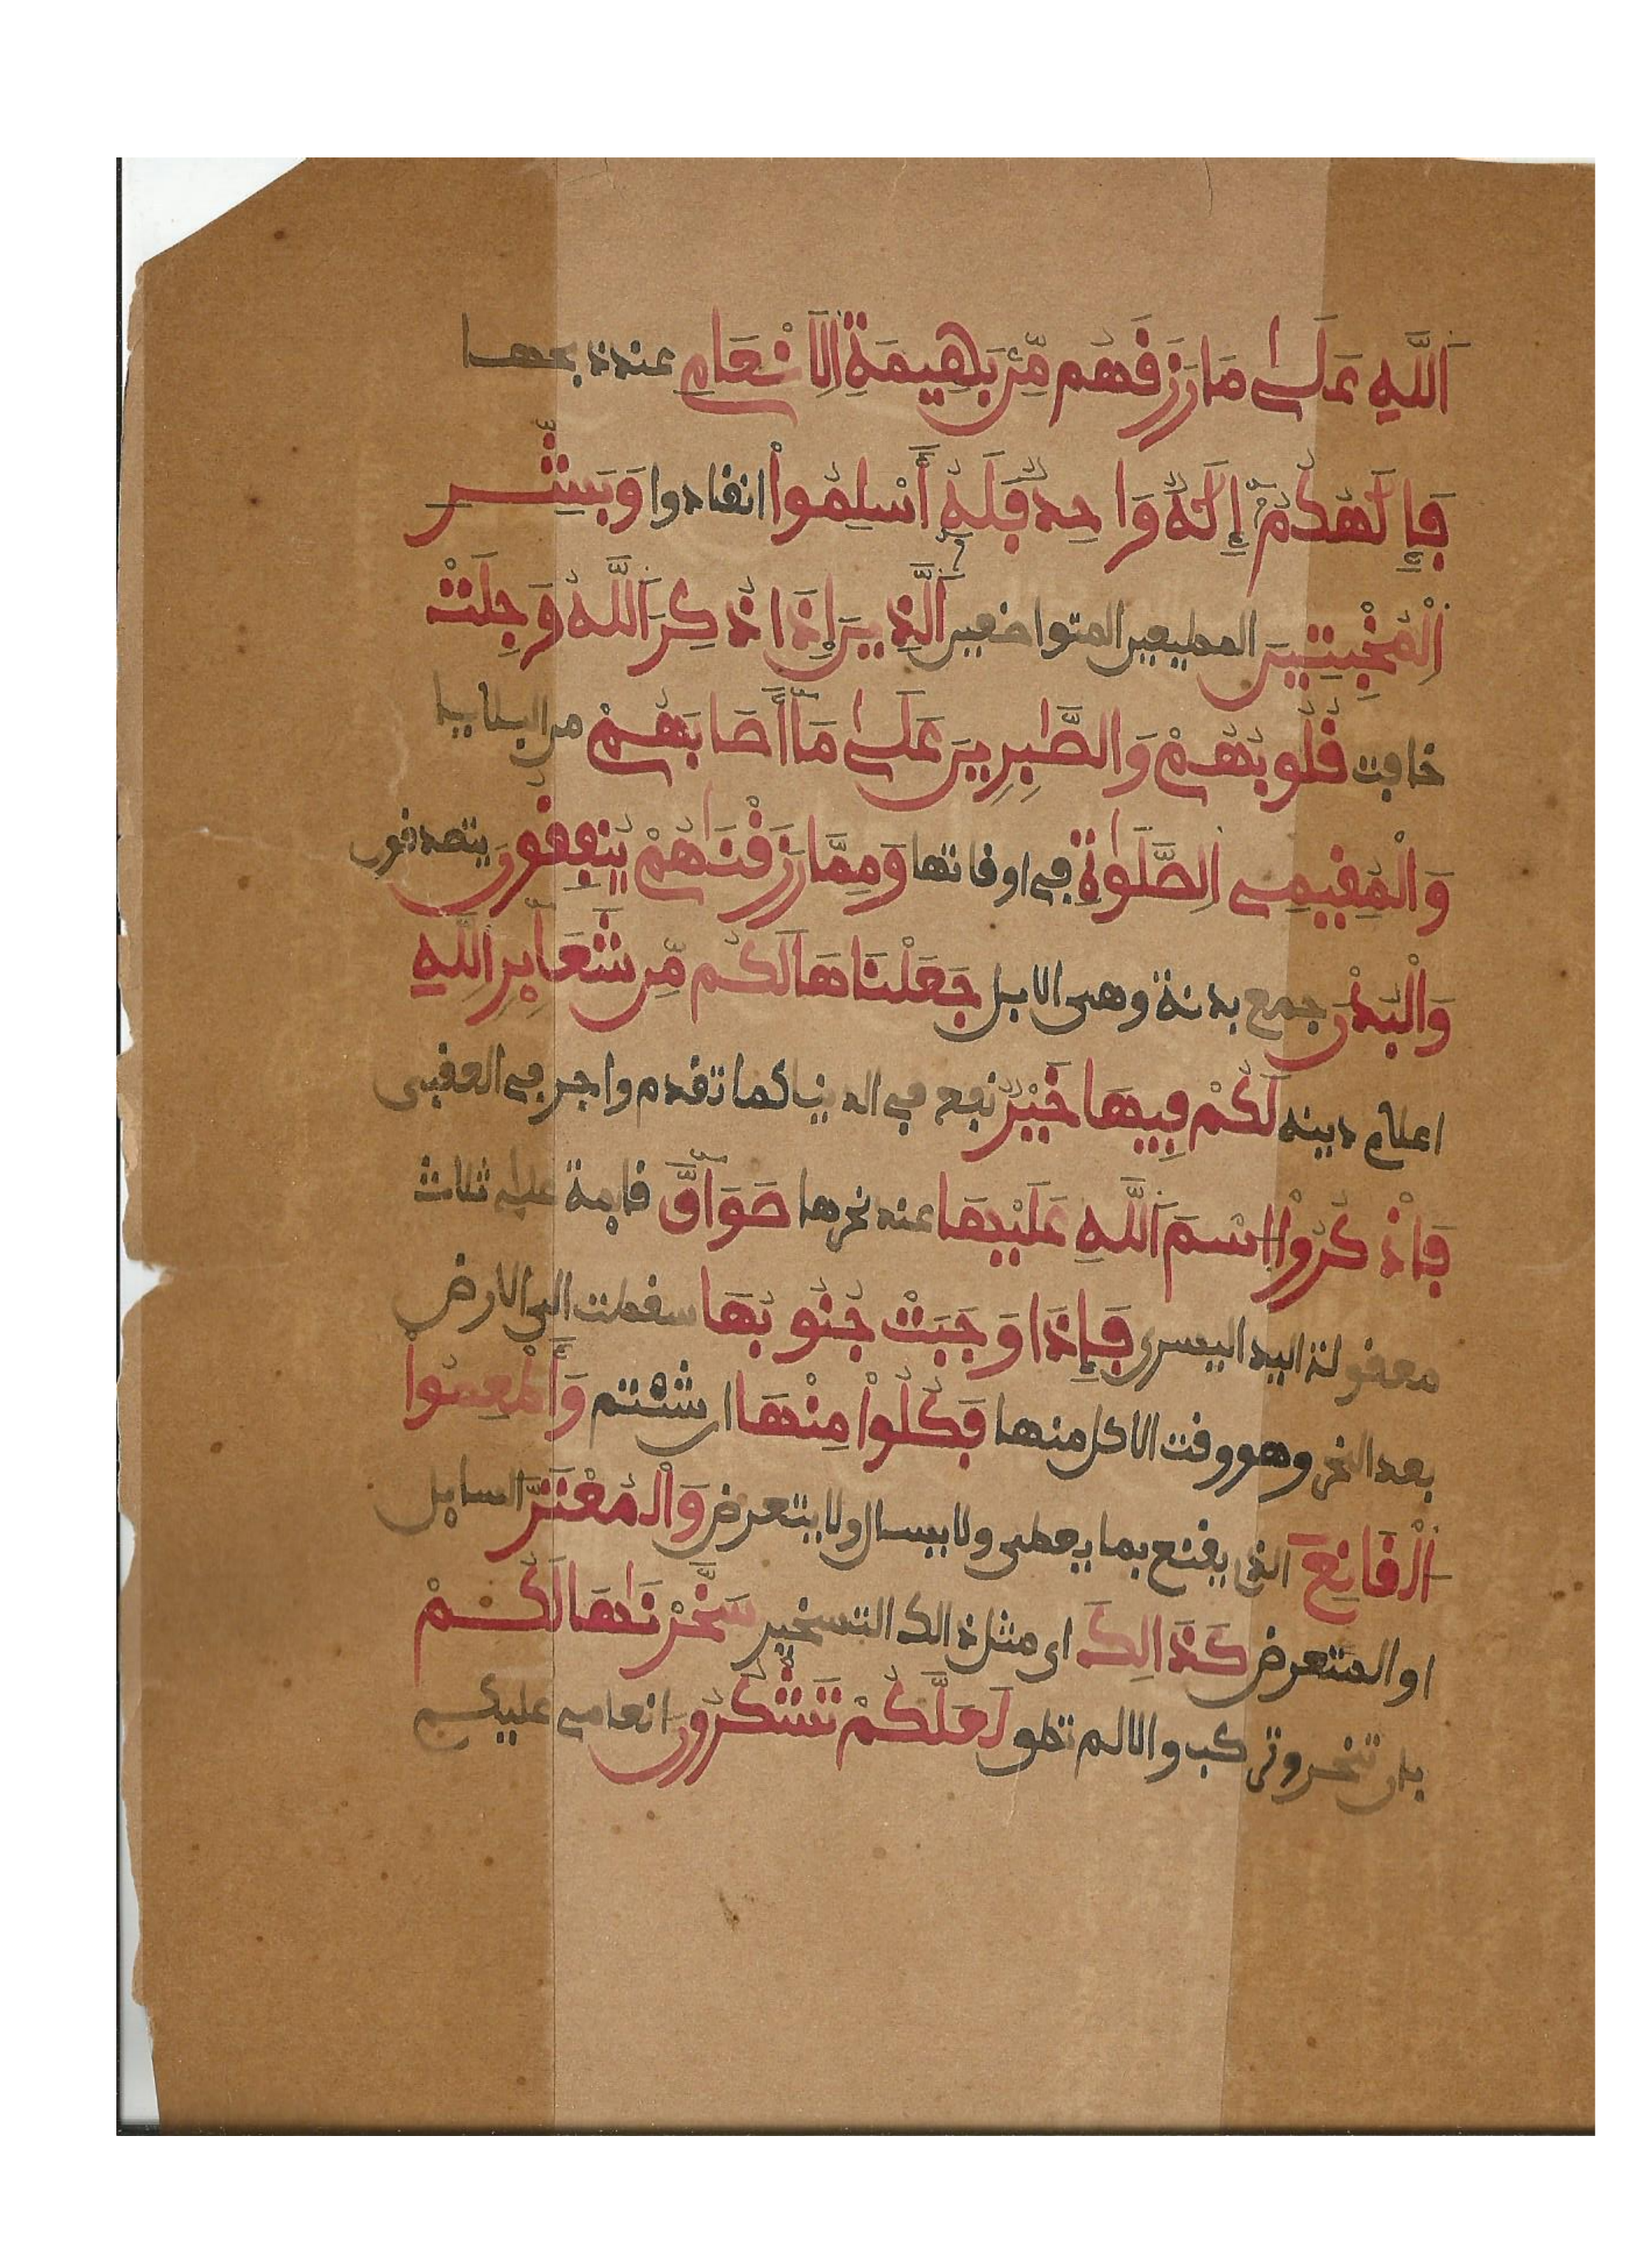 اَللَّهِ عَلَىٰ مَا رَزَقَهُم مِّنۢ بَهِيمَةِ اِلَانْعَامِ عند ذبحها
فَإِلَٰهُكُمُ إِلَٰهٌ وَاحِدٌ فَلَهُ أَسْلِمُواْ انقادوا وَبَشِّرِ
اِلْمُخْبِتِينَ المطيعين المتواضعين اَلَّذِينَ إِذَا ذُكِرَ اَللَّهُ وَجِلَتْ
خافت قُلُوبُهُمْ وَالصَّٰبِرِينَ عَلَىٰ مَا أَصَابَهُمْ من البلايا
وَالْمُقِيمِى اِلصَّلَوٰةِ في اوقاتها وَمِمَّا رَزَقْنَٰهُمْ يُنفِقُونَ يتصدقون
وَالْبُدْنَ جمع بدنة وهى الابل جَعَلْنَاهَا لَكُم مِّن شَعَٰٓئِرِ اِللَّهِ
اعلام دينه لَكُمْ فِيهَا خَيْرٌ نفع في الدنيا كما تقدم واجر في العقبى
فَاذْكُرُواْ اُسْمَ اَللَّهِ عَلَيْهَا عند نحرها صَوَآفَّ قايمة على ثلاث
معقولة اليد اليسرى فَإِذَا وَجَبَتْ جُنُوبُهَا سقطت الى الارض
بعد النحر وهو وقت الاكل منها فَكُلُواْ مِنْهَا ان شئتم وَأَطْعِمُواْ
اُلْقَانِعَ الذى يقنع بما يعطى ولا يسال ولا يتعرض وَالْمُعْتَرَّ السايل
او المتعرض كَذَالِكَ اى مثل ذالك التسخير سَخَّرْنَٰهَا لَكُمْ
بان تنحر وتركب والا لم تطق لَعَلَّكُمْ تَشْكُرُونَ انعامى عليكم